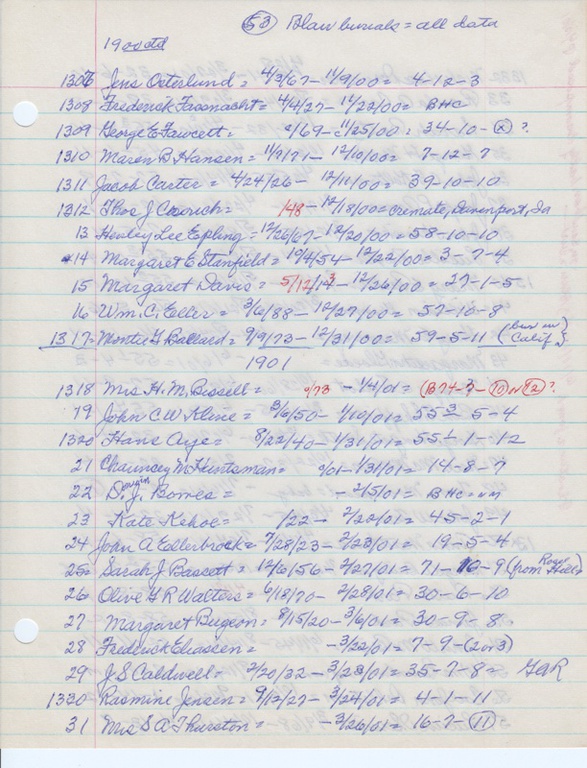 (53) Blair burials = all data
1900 ctd
1306 Jens Osterlund = 4/3/67 - 11/9/00 = 4-12-3
1308 Frederick Fassnacht = 4/4/27 - 11/22/00 = BHC
1309 George E Fawcett = 0/69 - 11/25/00 = 34-10-(x) ?
1310 Maren B Hansen = 11/9/71 - 12/10/00 = 7-12-7
1311 Jacob Carter = 4/24/26 - 12/11/00 = 39-10-10
1312 Thos J = 1/48 - 12/18/00 = cremate, Davenport, Ia
13 Henley Lee Epling = 12/26/67 - 12/20/00 = 58-10-10
14 Margaret E Stanfield = 10/4/54 - 12/22/00 = 3-7-4
15 Margaret Davis = 5/12/13 - 12/26/00 = 27-1-5
16 Wm. C. Eller = 3/6/88 - 12/27/00 = 57-10-8
1317 = Monte G Ballard = 9/9/73 - 12/31/00 = 59-5-11 (bur in Calif.)
1901
1318 Mrs H. M. Bissell = 0/73 - 1/4/01 = (B74-3-(11) or (12) ?
19 John C W Kline = 3/6/50 - 1/10/01 = 55-5-4
1320 Hans Aye = 8/22/40 - 1/31/01 = 55-1-12
21 Chauncey M Huntsman = 0/01 - 1/31/01 = 14-8-7
22 D. J. Bowes = - 2/15/01 = BHC = nm
23 Kate Kehoe = 1/22 - 2/22/01 = 45-2-1
24 John A Ellerbrock = 7/28/23 - 2/23/01 = 19-5-4
25 = Sarah J Bassett = 12/6/56 - 2/27/01 = 71-10-9 (from Rose Hill)
26 = Olive G R Walters = 6/18/70 - 2/28/01 = 30-6-10
27 Margaret Bugeon = 8/15/20 - 3/6/01 = 30-9-8
28 Frederick Eliassen = - 3/22/01 = 7-9-(2 or 3)
29 J S Caldwell = 2/20/32 - 3/23/01 = 35-7-8 = GAR
1330 Rasmine Jensen = 9/12/27 - 3/24/01 = 4-1-11
31 Mrs S A Thurston = - 3/26/01 = 16-7-(11)